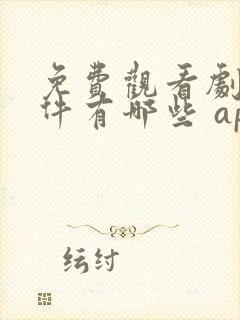 免費觀看劇
件有哪些 ap
纭纣